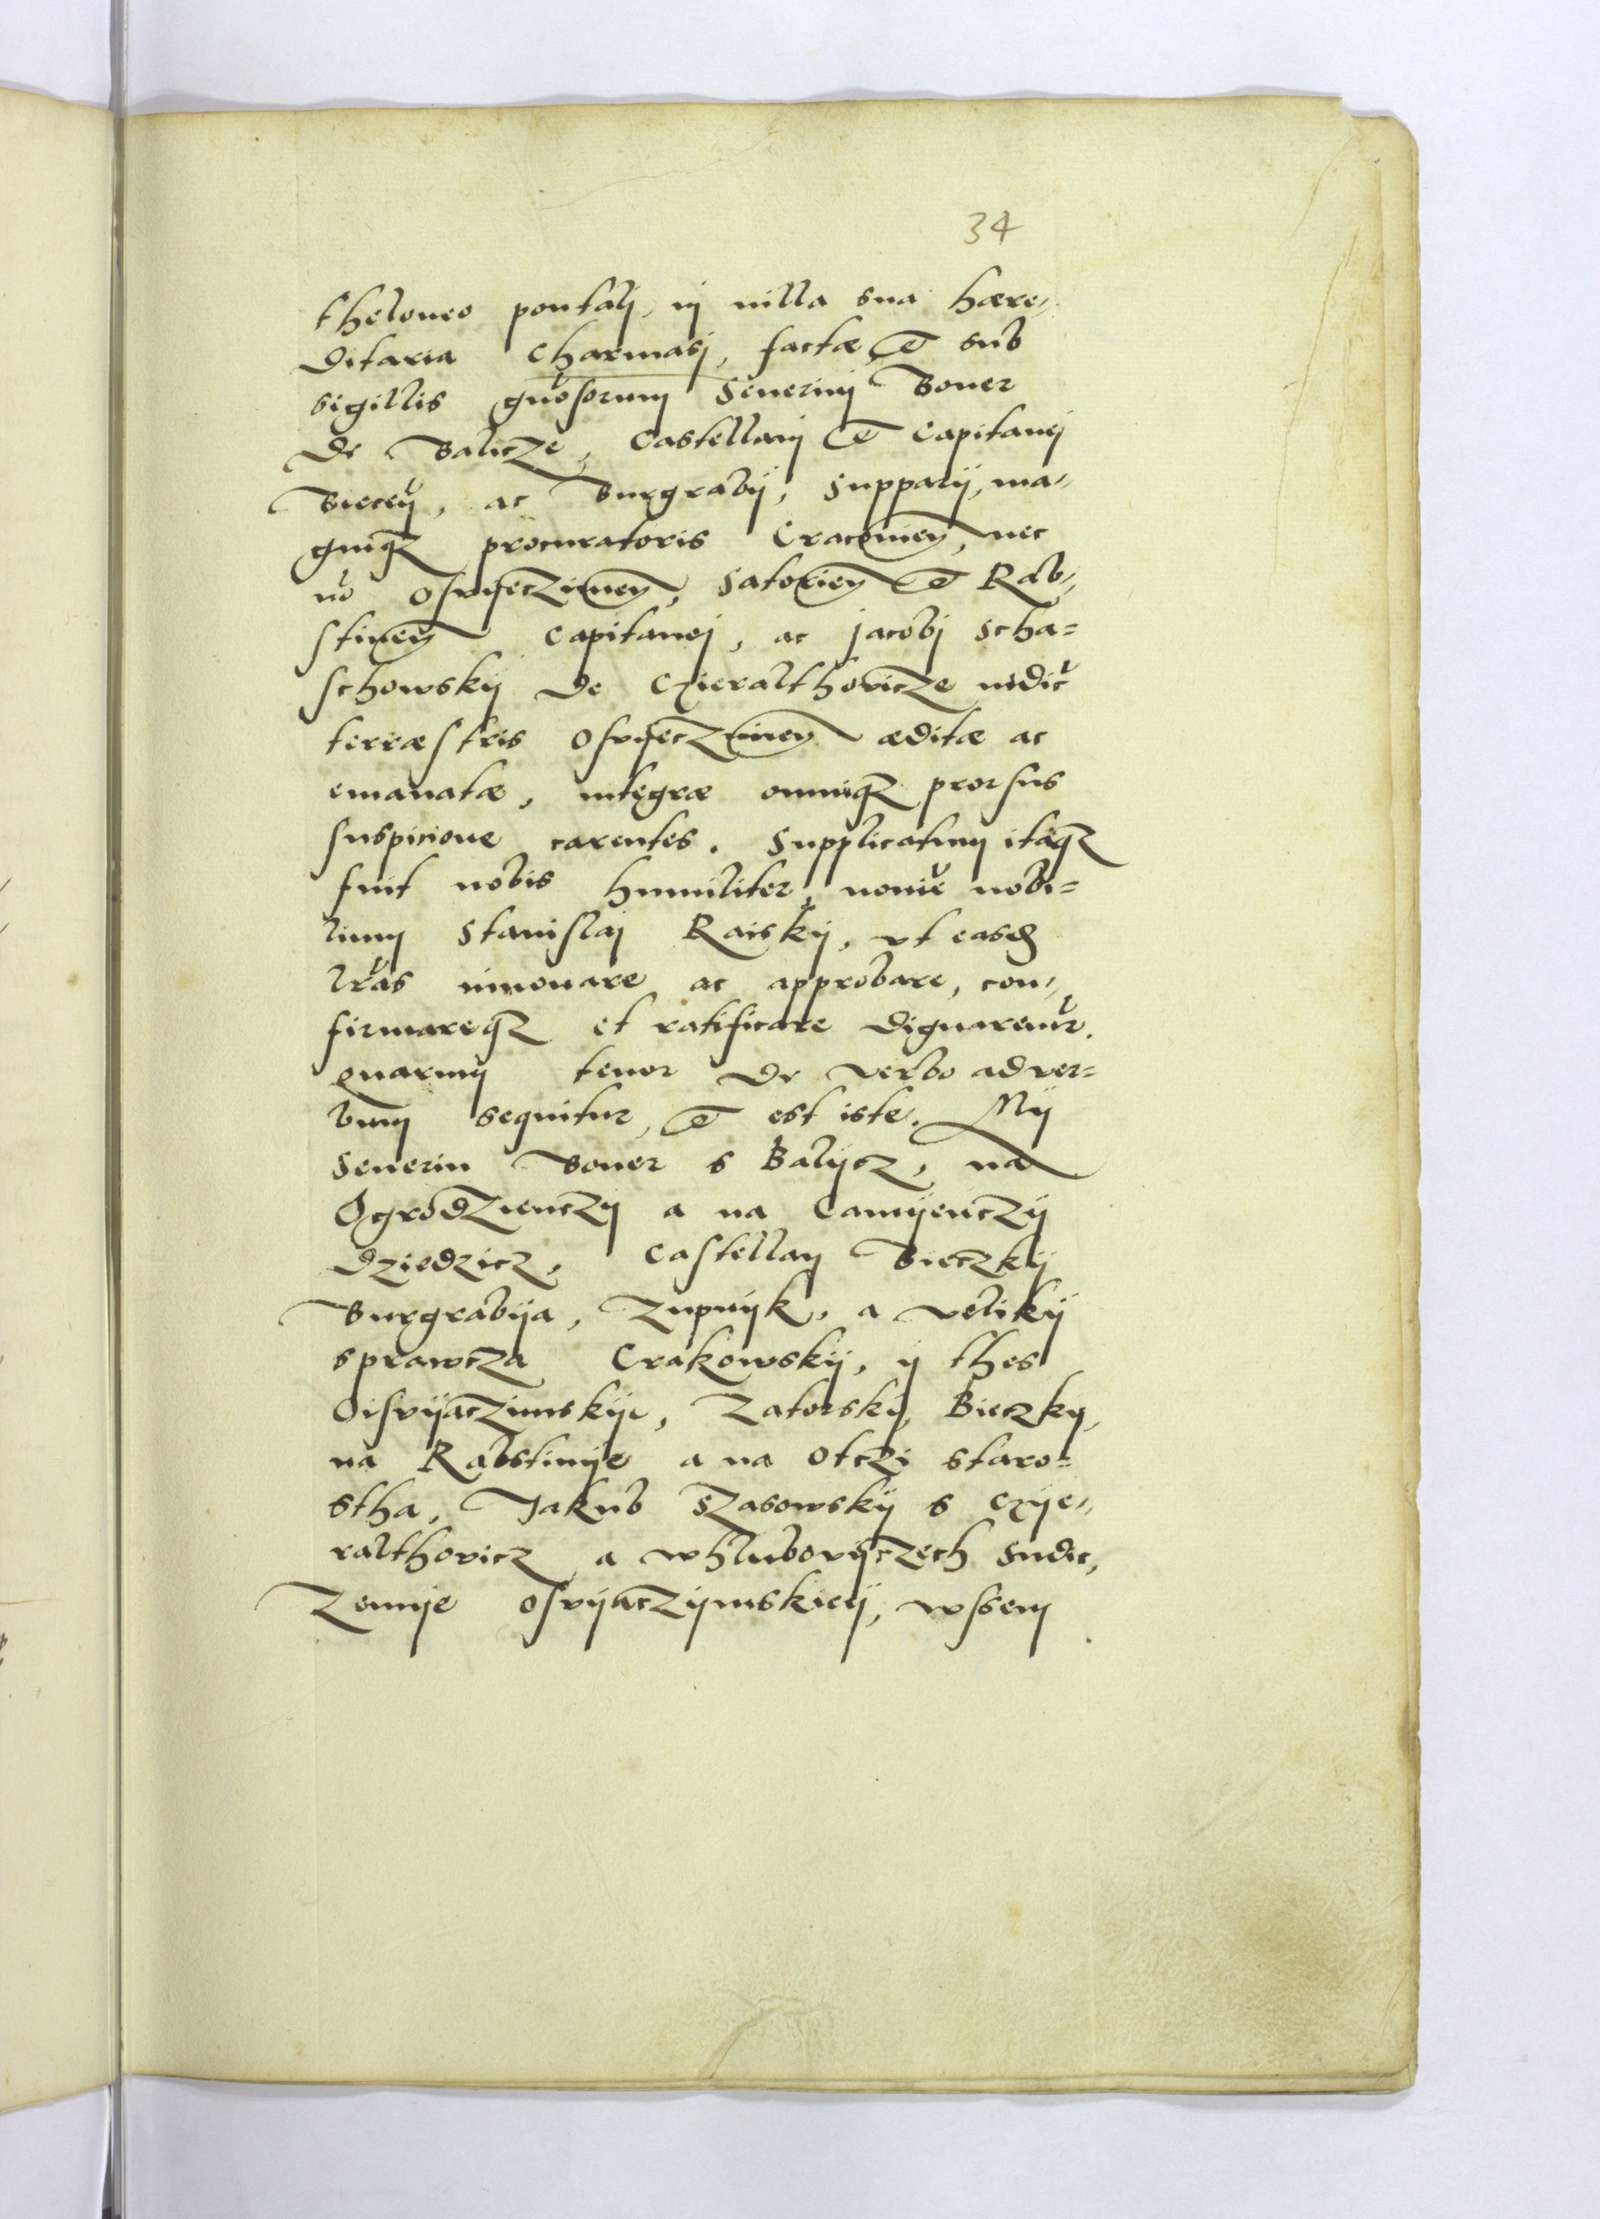 34
theloneo pontalj, in uilla sua hære-
ditaria Charmasj, factæ et sub
sigillis gn̄osorum Seuerinj Boner
De Balicze, Castellanj et Capitanej
Biecen̄, ac Burgrabij, Supparij, ma-
gniq₃ procuratoris Cracouien̄, nec
nō Osvijeczimen̄, Satorien̄ et Rab-
stinen̄ Capitanej, ac Jacobj Scha=
schowskij De Gieralthovicze iudic̄
terræstris Osvijeczimen̄ æditæ ac
emanatæ, integræ omniq₃ prorsus
suspicione carentes. Supplicatum itaq₃
fuit nobis humiliter, noniē nobi=
lium Stanislaj Raiskij, vt easdē
lr̄as innouare ac approbare, con-
firmareq₃ et ratificare Dignaremūr.
Quarum tenor De verbo ad ver=
bum sequitur, et est iste. Mij
Seuerin Boner s Balijcz, na
Ogrodzienczij a na Camijenczij
Dziedzicz, Castellan Bieczkij
Burgrabija, Zupnijk, a velikij
sprawcza Crakowskij, ij thes
Oisvijaczimskije, Zatorskij, Bieczkij,
na Rabstinije a na Otczi staro=
stha, Jakub Szasowskij s Gije-
ralthovicz a whlubovijczech Sudic,
Zemije Osvijaczijmskieij, wssem